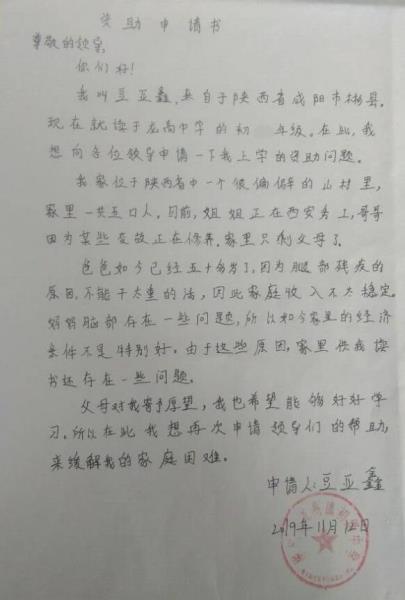 资助申请书
尊敬的领导:
你们好!
我叫豆亚鑫,来自于陕西省咸阳市彬县。
现在就读于龙高中学的初 年级。在此,我
想向各位领导申请一下我上学的资助问题。
我家位于陕西省中一个很偏僻的山村里,
家里一共五口人,目前,姐姐正在西安务工,哥哥
因为某些变故正在修养,家里只剩父母了。
爸爸如今已经五十多岁了,因为腿部残疾的
原因,不能干太重的活,因此家庭收入不太稳定。
妈妈脑部存在一些问题,所以如今家里的经济
条件不是特别好。由于这些原因,家里供我读
书还存在一些问题。
父母对我寄予厚望,我也希望能够好好学
习。所以在此我想再次申请领导们的帮助,
来缓解我的家庭困难。
申请人:豆亚鑫
2019年11月12日